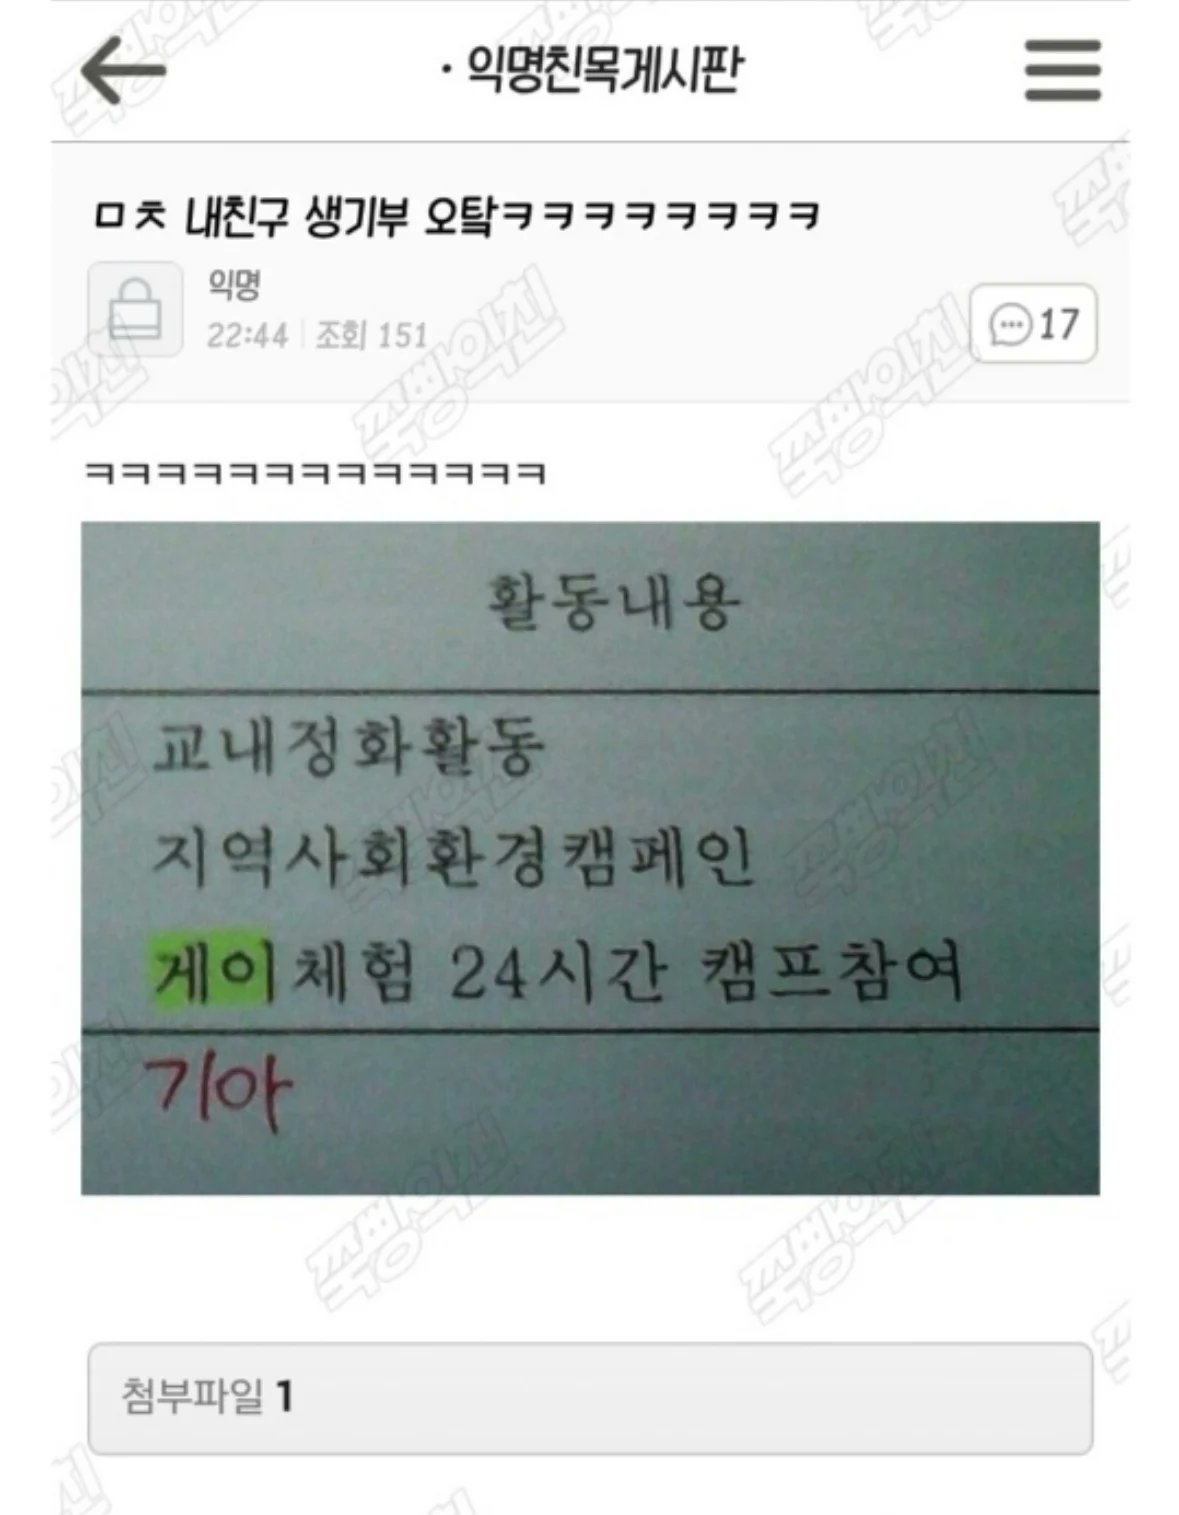 · 익명친목게시판
ㅁㅊ 내친구 생기부 오탘ㅋㅋㅋㅋㅋㅋㅋㅋ
익명
22:44 조회 151
17
ㅋㅋㅋㅋㅋㅋㅋㅋㅋㅋㅋㅋㅋ
활동내용
교내정화활동
지역사회환경캠페인
게이체험 24시간 캠프참여
기아
첨부파일 1
쭉빵익친